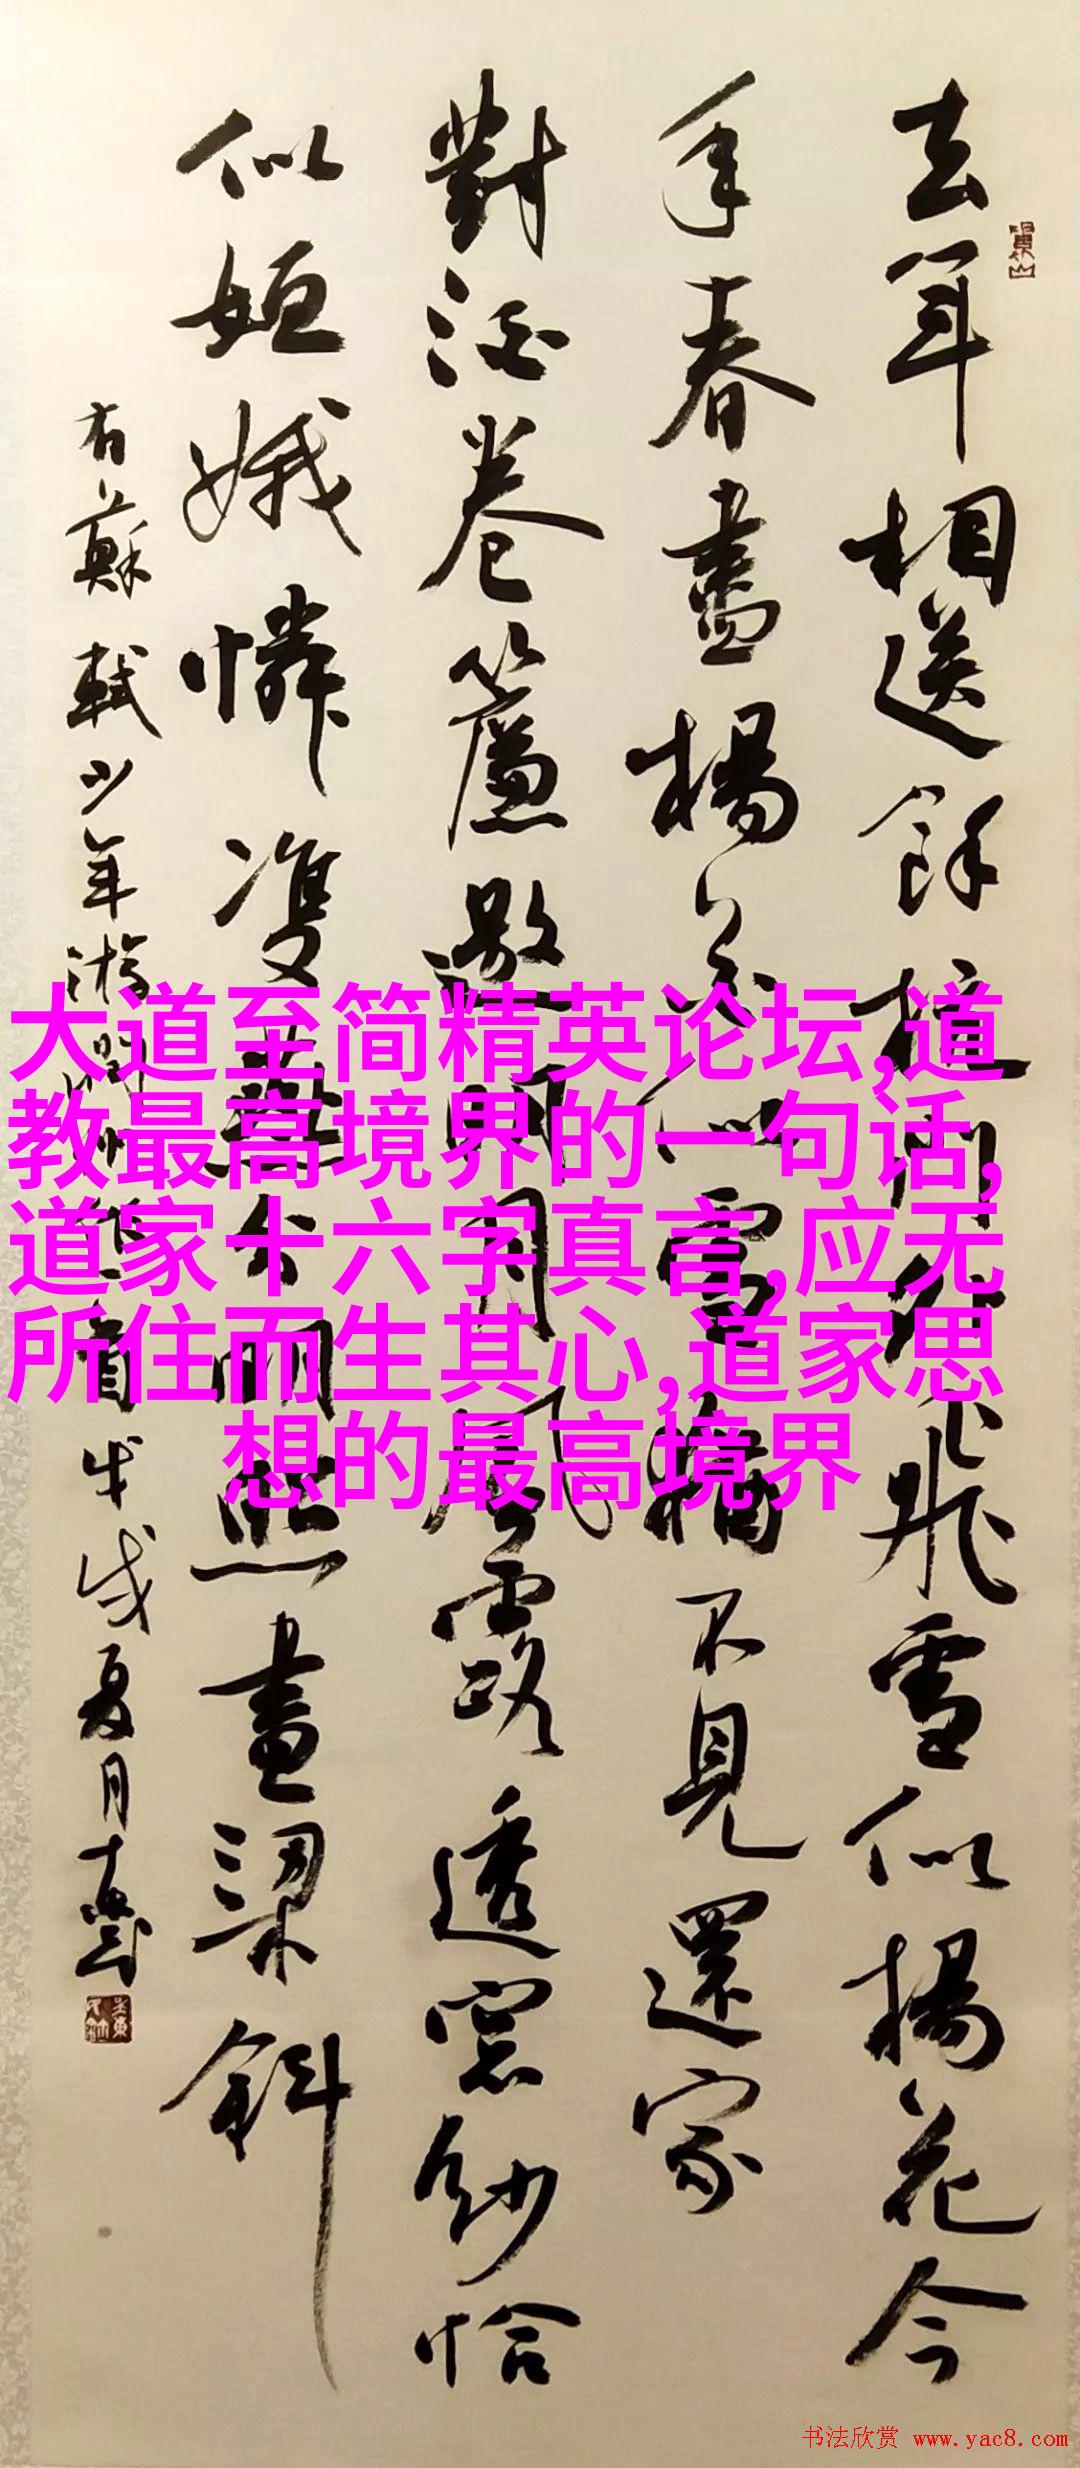 去年相送餘杭門外飛雪似楊花今
年春盡楊花似雪猶不見還家
對酒卷簾邀明月風露透窗紗恰
似姮娥憐雙燕分明照畫梁斜
右蘇軾少年游潤州作首戊戌夏月
大道至简精英论坛,道
教最高境界的一句话,
道家十六字真言,应无
所住而生其心,道家思
想的最高境界
书法欣赏 www.yac8.com